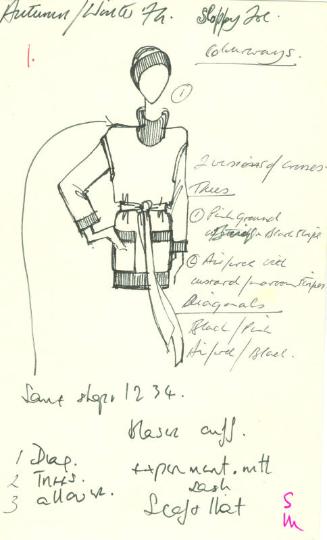 Autumn/Winter 74. Sloppy Joe
Colourways.
1.
1
2 versions of crosses
Trees
① Pink ground
Black stripe
② Airforce with
custard/maroon stripes
Diagonals
Black/Pink
Airforce/Black.
Same shape 1 2 3 4.
cuff.
1 Diag.
2 Trees.
3 allover.
experiment. with
sash
Scarf Hat
S
M